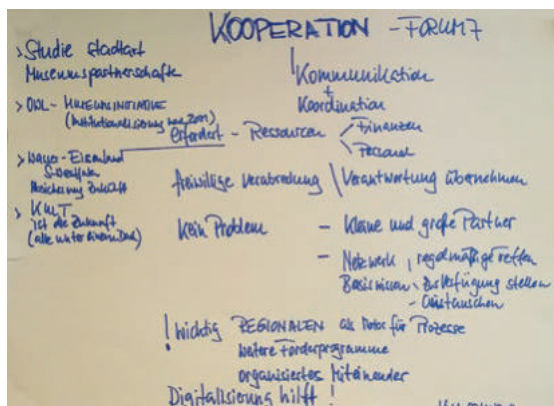 KOOPERATION - FORUM 7
> Studie stadtart
Museumspartnerschafte
> OWL - MUSEUMSINITIATIVE
(Institutionalisierung
> 
Südwestfalen
Zukunft
> KULT
ist die Zukunft
(alle unter einem Dach)
! Kommunikation
+
Koordination
erfordert - Ressourcen / Finanzen
\ Personal
freiwillige Verabredung \ Verantwortung übernehmen
Kein Problem - Kleine und große Partner
- Netzwerk, regelmäßige Treffen
Basiswissen - zur Verfügung stellen
- Austauschen
! Wichtig REGIONALEN als Motor für Prozesse
weitere Förderprogramme
organisiertes Miteinander
Digitalisierung hilft !